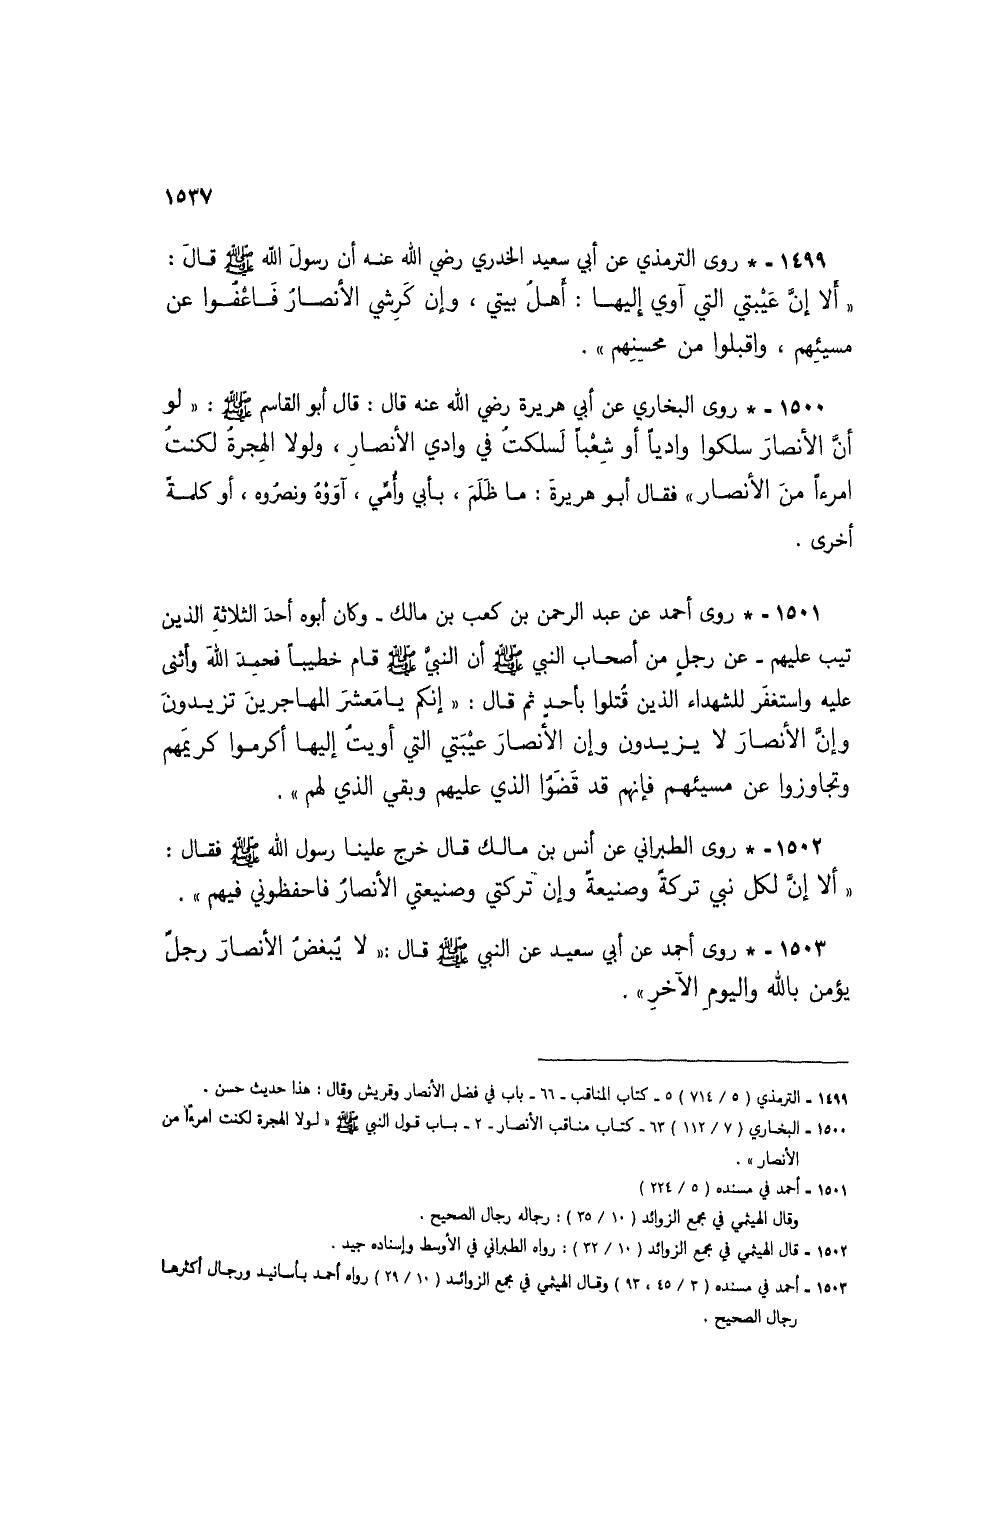 ١٥٣٧
١٤٩٩ ـ * روى الترمذي عن أبي سعيد الخدري رضي الله عنـه أن رسولَ الله ﷺ قـالَ :
« أَلا إنَّ عَيْبتي التي آوي إليهـا : أَهـلُ بيتي ، وإن كَرِشي الأنصـارُ فَـاعْفُـوا عن
مسيئِهم ، واقبلوا من محسنِهم » .
١٥٠٠ ـ * روى البخاري عن أبي هريرة رضي الله عنه قال : قال أبو القاسم ﷺ : « لو
أنَّ الأنصارَ سلكوا وادياً أو شِعْباً لَسلكتُ في وادي الأنصـارِ ، ولولا الهِجرةُ لكنتُ
امرءاً منَ الأنصـار » فقـال أبـو هريرةَ : مـا ظَلَمَ ، بـأبي وأُمِّي ، آوَوْهُ ونصرُوه ، أو كلمـةً
أخرى .
١٥٠١ ـ * روى أحمد عن عبد الرحمن بن كعب بن مالك ـ وكان أبوه أحدَ الثلاثةِ الذين
تيب عليهم ـ عن رجلٍ من أصحـاب النبي ﷺ أن النبيَّ ﷺ قـام خطيبـاً فحمِـدَ اللهَ وأثنى
عليه واستغفَر للشهداء الذين قُتلوا بأحـدٍ ثم قـال : « إنكم يـا مَعشرَ المهـاجرينَ تزيـدونَ
وإنَّ الأنصـارَ لا يـزيـدون وإن الأنصـارَ عيْبَتي التي أويتُ إليهـا أكرمـوا كريَهم
وتجاوزوا عن مسيئهـم فإنهم قد قَضَوُا الذي عليهم وبقي الذي لهم » .
١٥٠٢ ـ * روى الطبراني عن أنس بن مـالـك قـال خرج علينـا رسول الله ﷺ فقـال :
« ألا إنَّ لكل نبي تركةً وصنيعةً وإن تركتي وصنيعتي الأنصارُ فاحفظوني فيهم » .
١٥٠٣ ـ * روى أحمد عن أبي سعيـد عن النبي ﷺ قـال :« لا يُبغضُ الأنصـارَ رجلٌ
يؤمن بالله واليومِ الآخرِ » .
١٤٩٩ ـ الترمذي ( ٥ / ٧١٤ ) ٥ ـ كتاب المناقب ـ ٦٦ ـ باب في فضل الأنصار وقريش وقال : هذا حديث حسن .
١٥٠٠ ـ البخاري ( ٧ / ١١٢ ) ٦٣ ـ كتـاب منـاقب الأنصـار ـ ٢ ـ بـاب قـول النبي ﷺ « لـولا الهجرة لكنت امرءًا من
الأنصار » .
١٥٠١ ـ أحمد في مسنده ( ٥ / ٢٢٤ )
وقال الهيثمي في مجمع الزوائد ( ١٠ / ٣٥ ) : رجاله رجال الصحيح .
١٥٠٢ ـ قال الهيثمي في مجمع الزوائد ( ١٠ / ٣٢ ) : رواه الطبراني في الأوسط وإسناده جيد .
١٥٠٣ ـ أحمد في مسنده ( ٣ / ٤٥ ، ٩٣ ) وقال الهيثمي في مجمع الزوائـد ( ١٠ / ٢٩ ) رواه أحمـد بـأسـانيـد ورجـال أكثرهـا
رجال الصحيح .